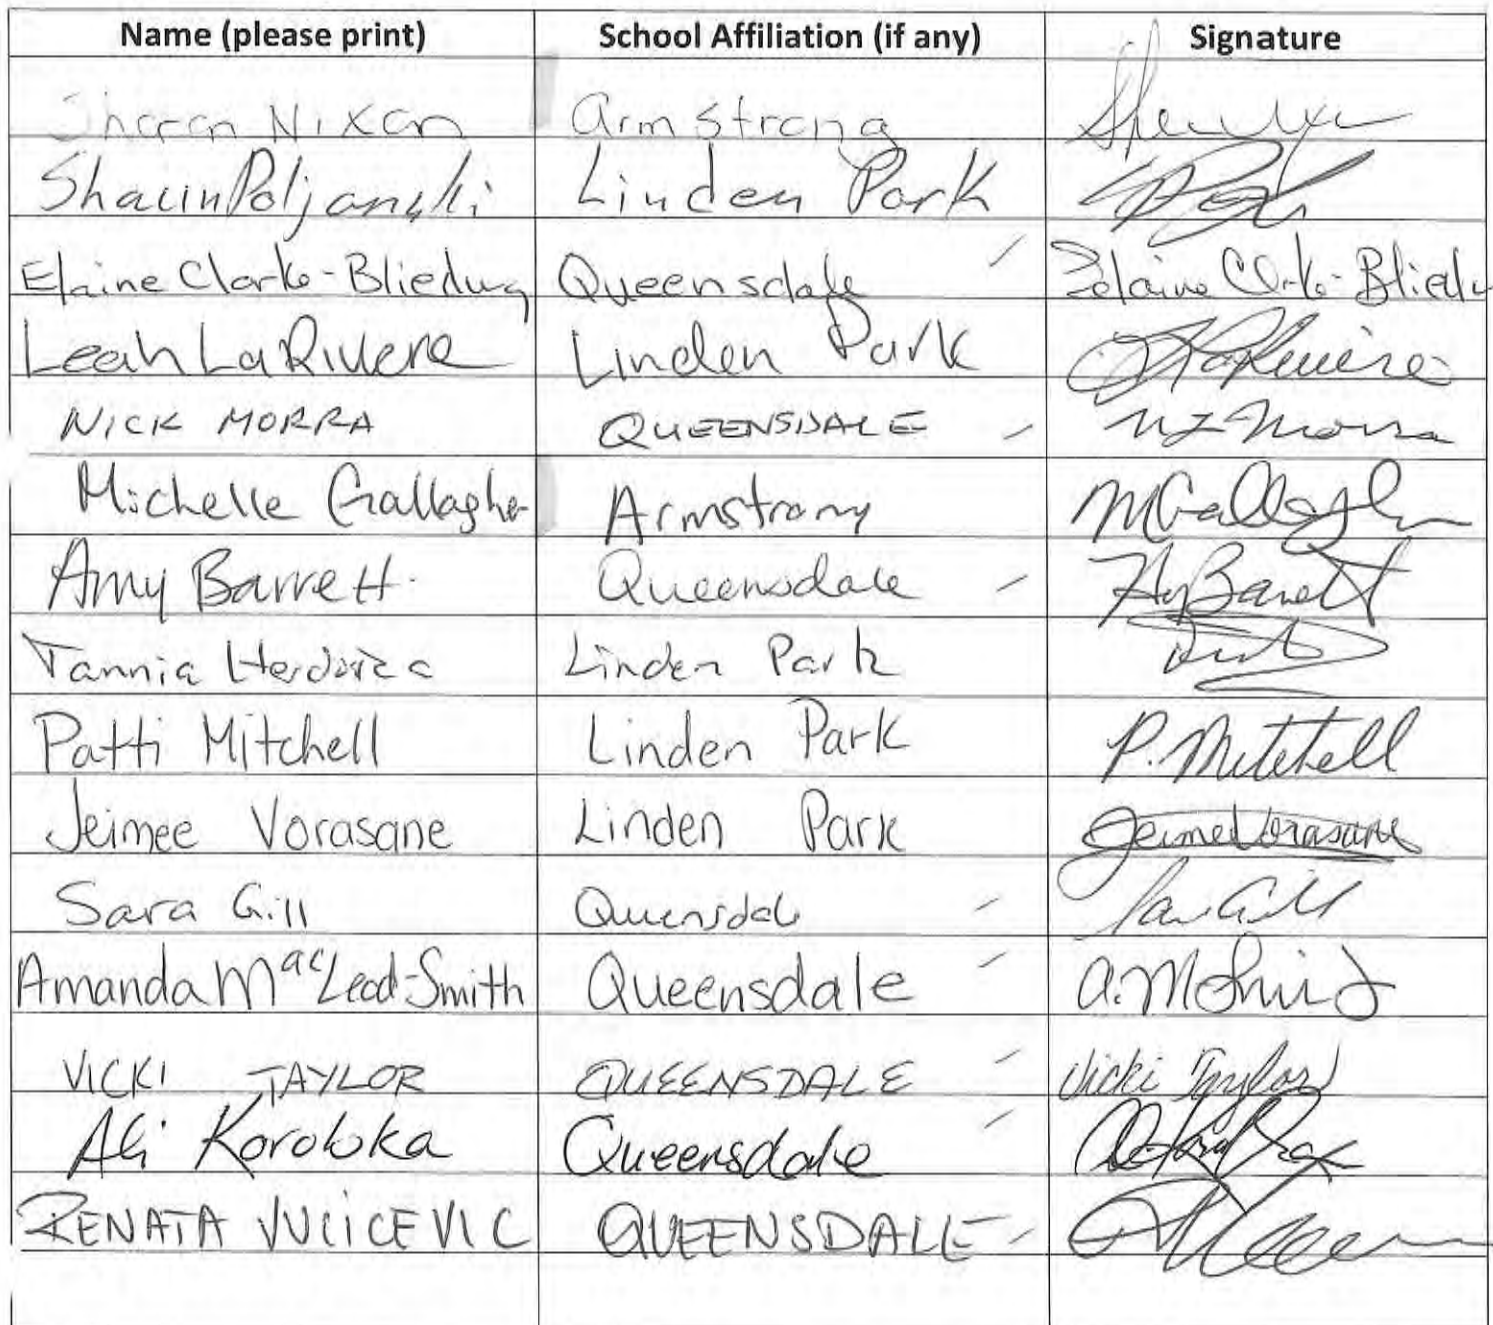 Name (please print) School Affiliation (if any) Signature
Sharon Nixon Armstrong
Shaun Poljanski Linden Park
Elaine Clarke-Bliedung Queensdale Elaine Clarke-Bliedu
Leah LaRiviere Linden Park L LaRiviere
NICK MORRA QUEENSDALE N Morra
Michelle Gallagher Armstrong MGallagher
Amy Barrett Queensdale Amy Barrett
Tannia Linden Park
Patti Mitchell Linden Park P. Mitchell
Jeimee Vorasane Linden Park Jeimee Vorasane
Sara Gill Queensdale Sara Gill
Amanda MacLeod-Smith Queensdale A. M Smith
VICKI TAYLOR QUEENSDALE Vicki Taylor
Ali Koroloka Queensdale
RENATA VUCICEVIC QUEENSDALE